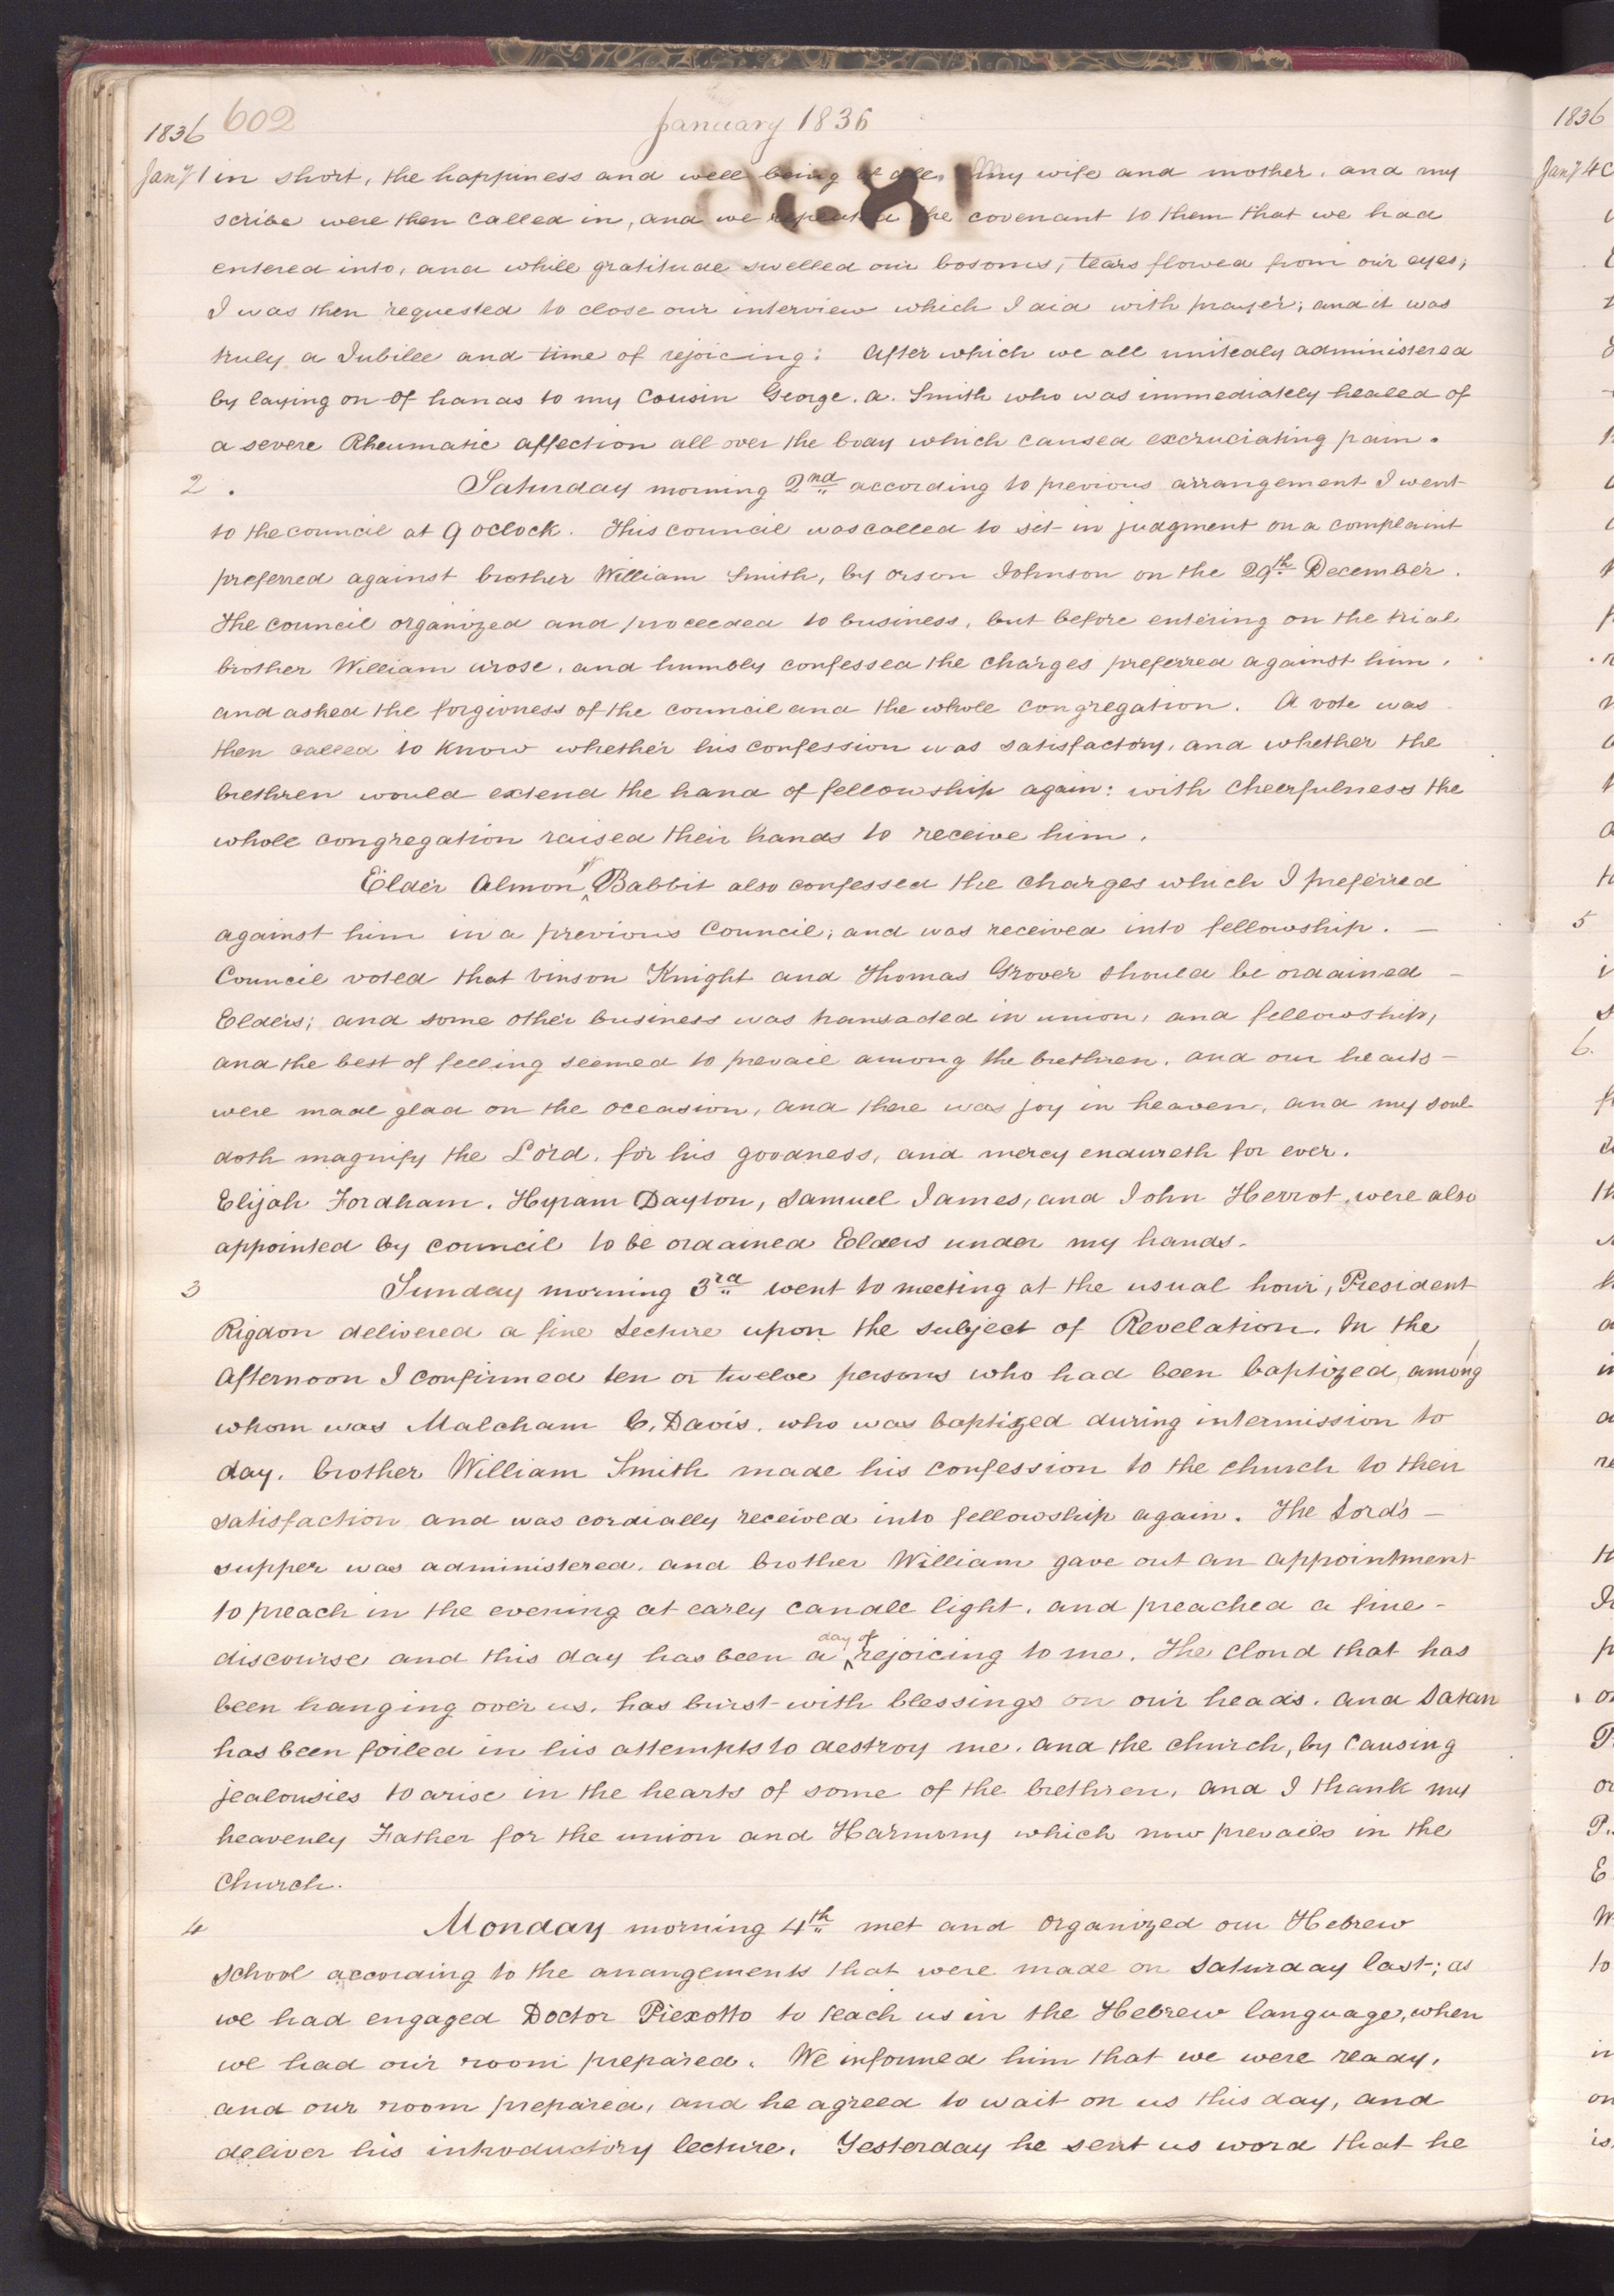 1836 602 January 1836
Jany 1 in short, the happiness and well being of all. My wife and mother, and my
scribe were then called in, and we repeated the covenant to them that we had
entered into, and while gratitude swelled our bosoms, tears flowed from our eyes;
I was then requested to close our interview which I did with prayer; and it was
truly a Jubilee and time of rejoicing: After which we all unitedly administered
by laying on of hands to my Cousin George. A. Smith who was immediately healed of
a severe Rheumatic affection all over the body which caused excruciating pain.
2. Saturday morning 2nd according to previous arrangement I went
to the council at 9 oclock. This council was called to sit in judgment on a complaint
preferred against brother William Smith, by Orson Johnson on the 29th December.
The council organized and proceeded to business, but before entering on the trial
brother William arose, and humbly confessed the charges preferred against him,
and asked the forgivness of the council and the whole congregation. A vote was
then called to know whether his confession was satisfactory, and whether the
brethren would extend the hand of fellowship again: with cheerfulness the
whole congregation raised their hands to receive him.
Elder Almon W Babbit also confessed the charges which I preferred
against him in a previous Council; and was received into fellowship. —
Council voted that Vinson Knight and Thomas Grover should be ordained —
Elders; and some other business was transacted in union, and fellowship,
and the best of feeling seemed to prevail among the brethren, and our hearts —
were made glad on the occasion, and there was joy in heaven, and my soul
doth magnify the Lord, for his goodness, and mercy endureth for ever.
Elijah Fordham, Hyram Dayton, Samuel James, and John Herrot, were also
appointed by council to be ordained Elders under my hands.
3 Sunday morning 3rd went to meeting at the usual hour, President
Rigdon delivered a fine Lecture upon the subject of Revelation. In the
Afternoon I confirmed ten or twelve persons who had been baptized, among
whom was Malcham C. Davis, who was baptized during intermission to
day. brother William Smith made his confession to the church to their
satisfaction and was cordially received into fellowship again. The Lord's —
supper was administered, and brother William gave out an appointment
to preach in the evening at early candle light, and preached a fine -
discourse and this day has been a day of rejoicing to me. The cloud that has
been hanging over us, has burst with blessings on our heads, and Satan
has been foiled in his attempts to destroy me, and the church, by causing
jealousies to arise in the hearts of some of the brethren, and I thank my
heavenly Father for the union and Harmony which now prevails in the
Church.
4 Monday morning 4th met and organized our Hebrew
School according to the arrangements that were made on Saturday last; as
we had engaged Doctor Piexotto to teach us in the Hebrew language, when
we had our room prepared. We informed him that we were ready,
and our room prepared, and he agreed to wait on us this day, and
deliver his introductory lecture. Yesterday he sent us word that he
1836
Jany 4
5
6.